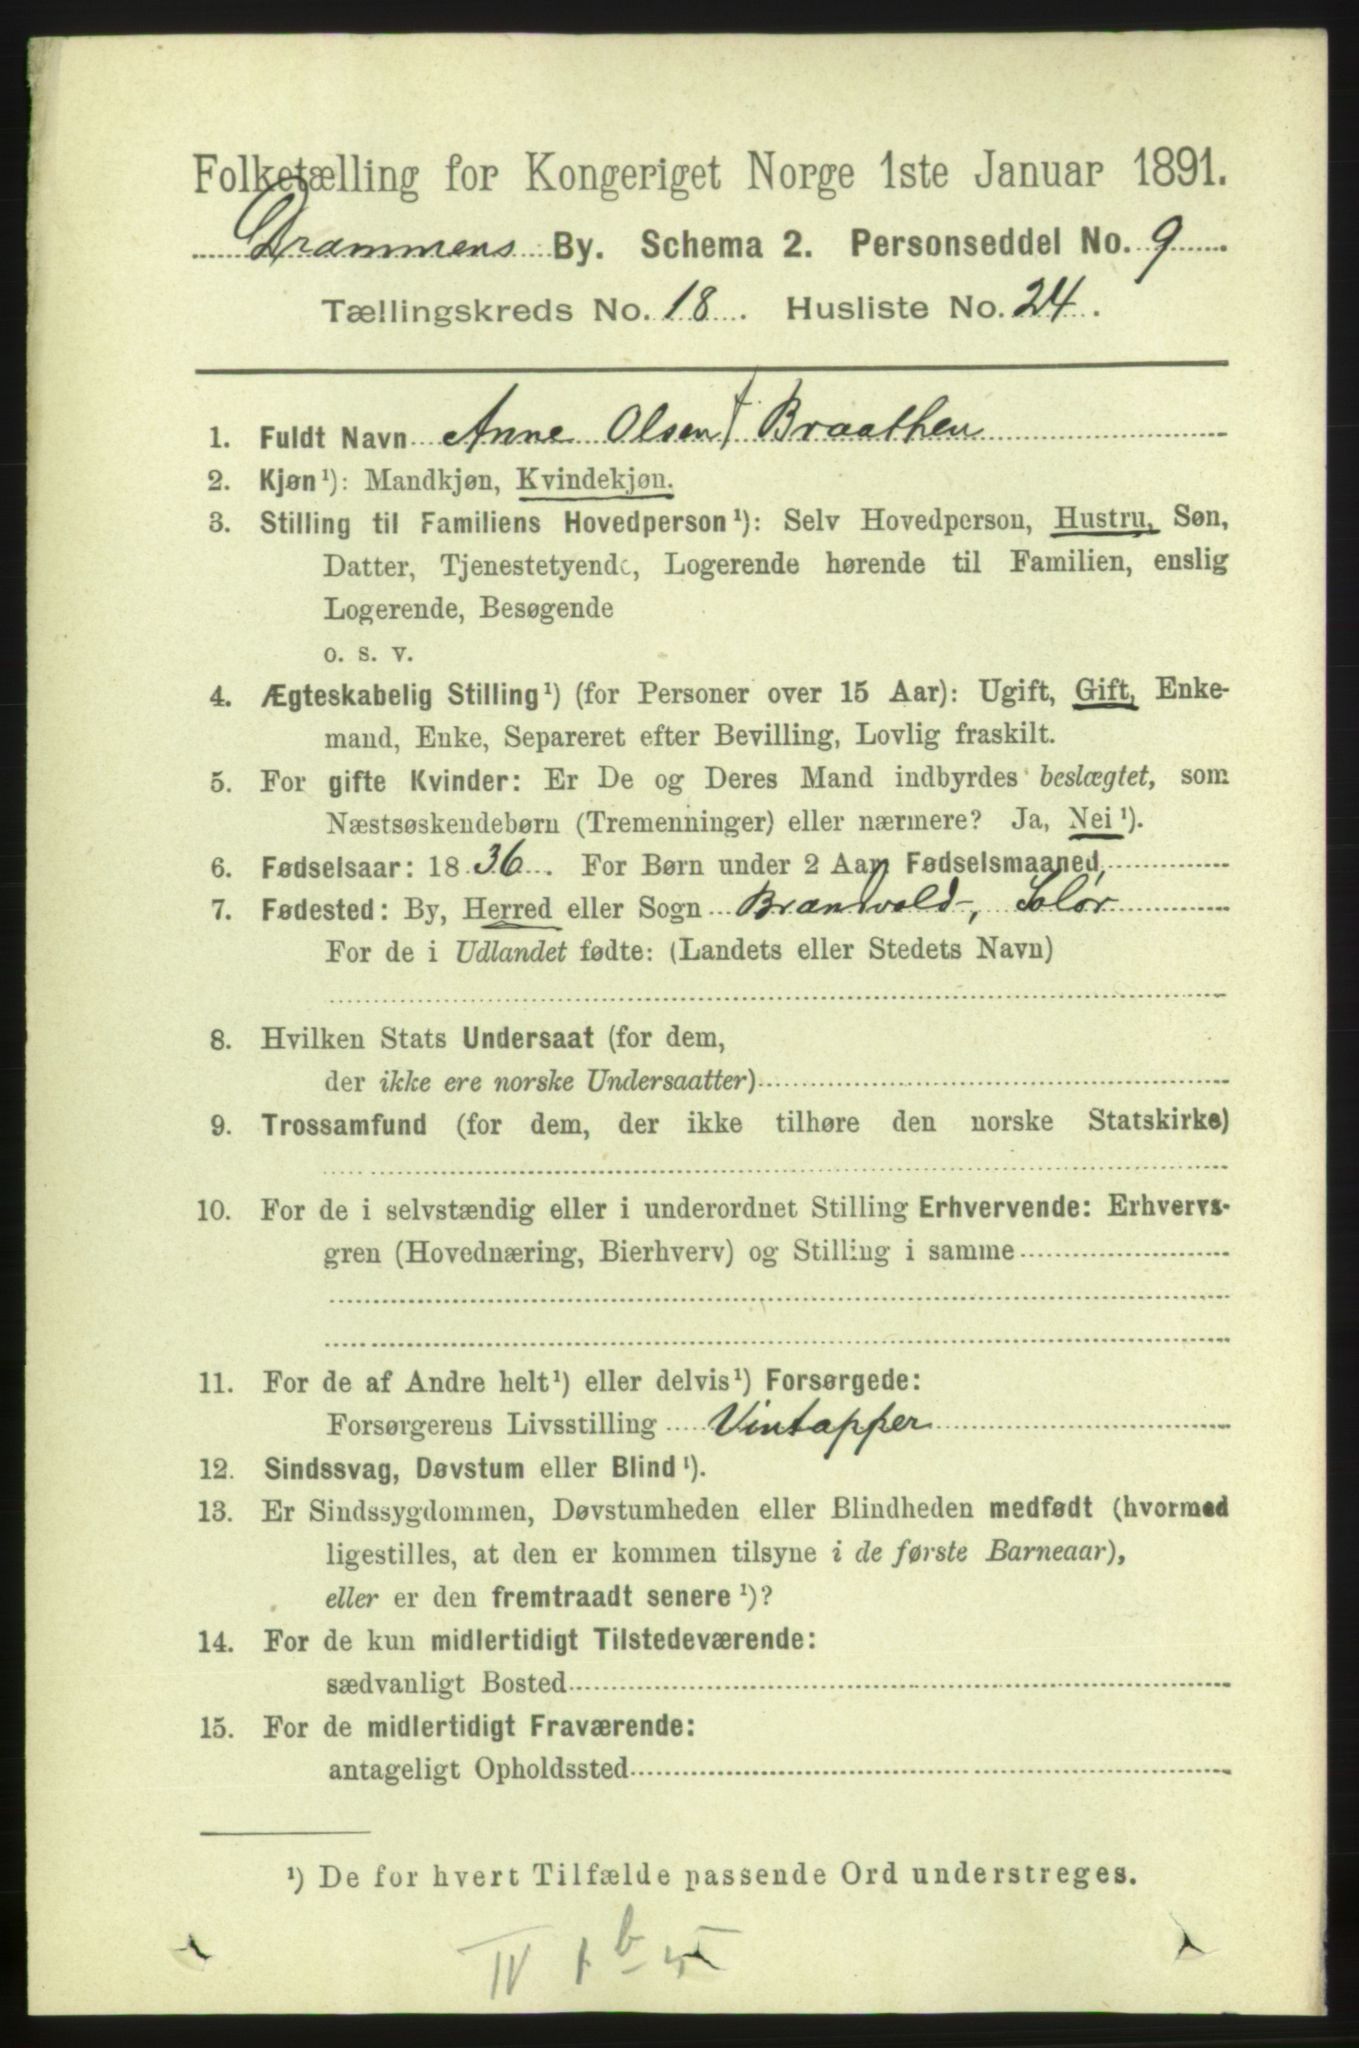 Folketælling for Kongeriget Norge 1ste Januar 1891.
Drammens By. Schema 2. Personseddel No. 9
Tællingskreds No. 18. Husliste No. 24.
1. Fuldt Navn Anne Olsen f Braathen
2. Kjøn¹): Mandkjøn, Kvindekjøn.
3. Stilling til Familiens Hovedperson¹): Selv Hovedperson, Hustru, Søn,
Datter, Tjenestetyende, Logerende hørende til Familien, enslig
Logerende, Besøgende
o. s. v.
4. Ægteskabelig Stilling¹) (for Personer over 15 Aar): Ugift, Gift, Enke-
mand, Enke, Separeret efter Bevilling, Lovlig fraskilt.
5. For gifte Kvinder: Er De og Deres Mand indbyrdes beslægtet, som
Næstsøskendebørn (Tremenninger) eller nærmere? Ja, Nei¹).
6. Fødselsaar: 1836. For Børn under 2 Aar Fødselsmaaned,
7. Fødested: By, Herred eller Sogn Brandvold, Solør
For de i Udlandet fødte: (Landets eller Stedets Navn)
8. Hvilken Stats Undersaat (for dem,
der ikke ere norske Undersaatter)
9. Trossamfund (for dem, der ikke tilhøre den norske Statskirke)
10. For de i selvstændig eller i underordnet Stilling Erhvervende: Erhvervs-
gren (Hovednæring, Bierhverv) og Stilling i samme
11. For de af Andre helt¹) eller delvis¹) Forsørgede:
Forsørgerens Livsstilling Vintapper
12. Sindssvag, Døvstum eller Blind¹).
13. Er Sindssygdommen, Døvstumheden eller Blindheden medfødt (hvormed
ligestilles, at den er kommen tilsyne i de første Barneaar),
eller er den fremtraadt senere¹)?
14. For de kun midlertidigt Tilstedeværende:
sædvanligt Bosted
15. For de midlertidigt Fraværende:
antageligt Opholdssted
¹) De for hvert Tilfælde passende Ord understreges.
IV 1 b